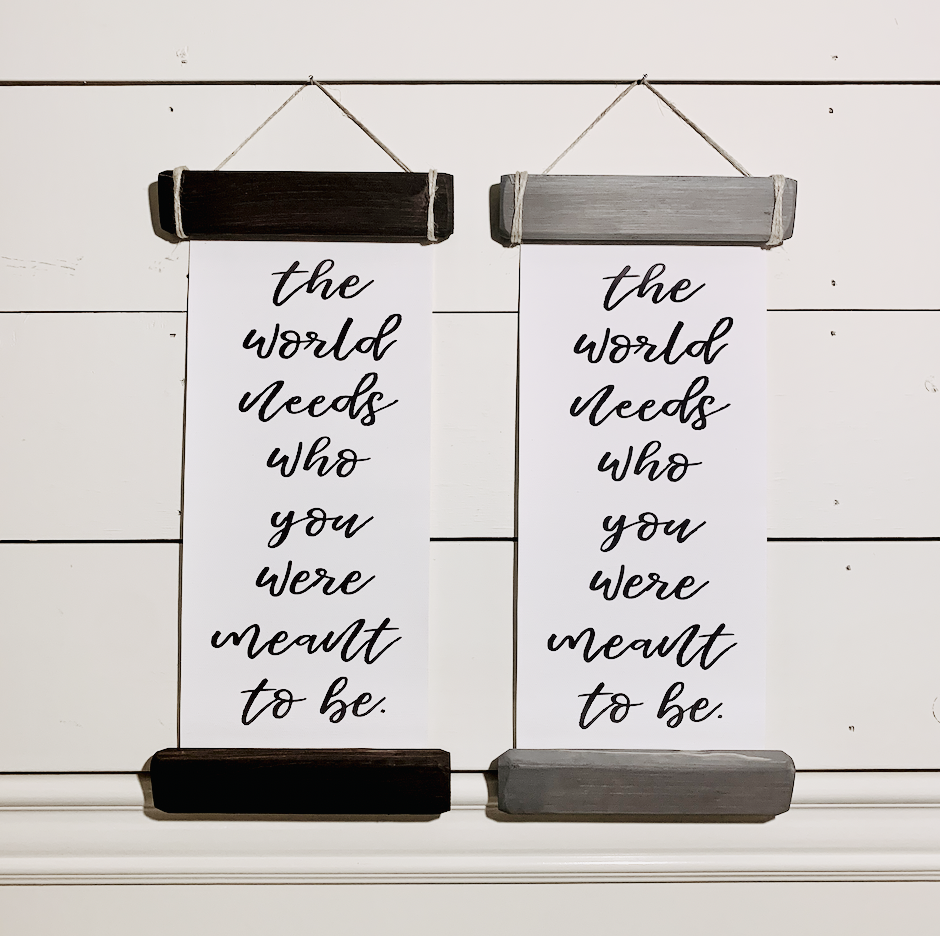 the
world
needs
who
you
were
meant
to be.
the
world
needs
who
you
were
meant
to be.